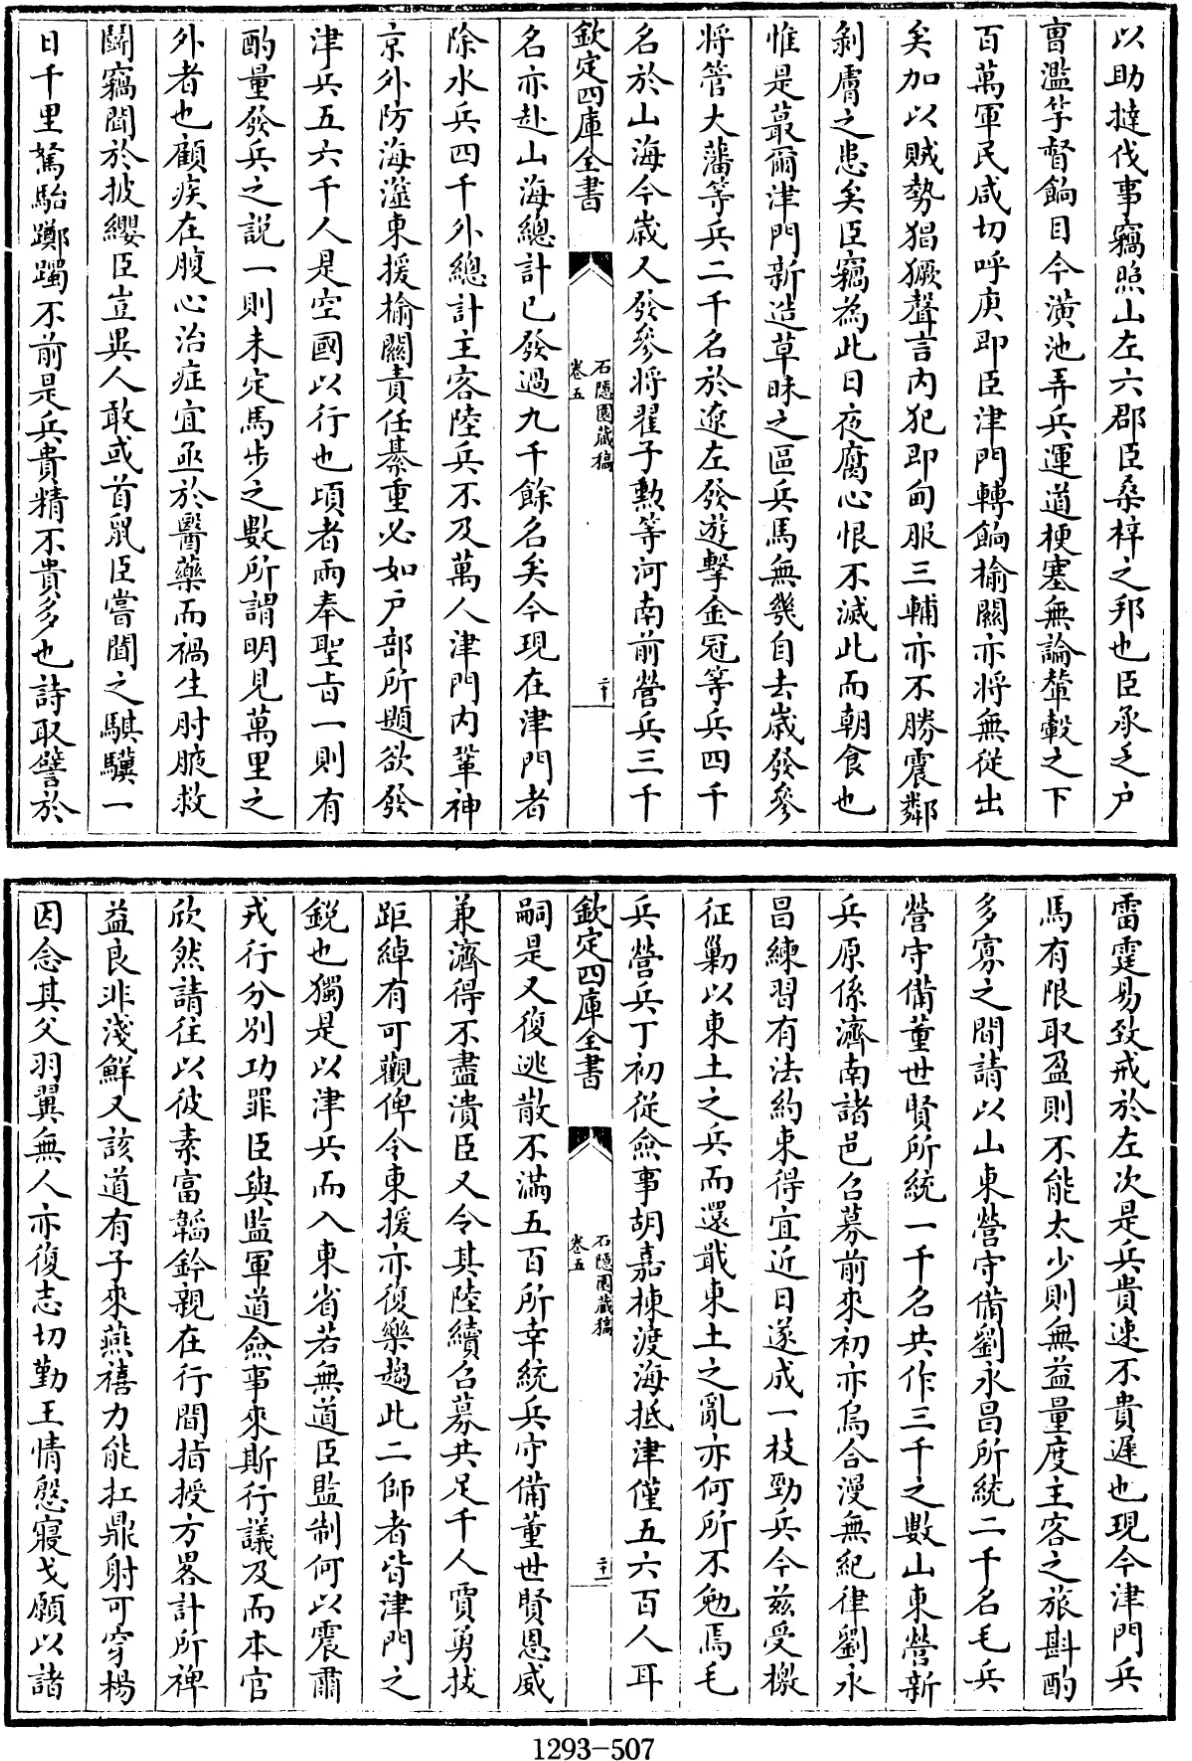 以助撻伐事竊照山左六郡臣桑梓之邦也臣承乏户
曺濫竽督餉目今潢池弄兵運道梗塞無論輦轂之下
百萬軍民咸切呼庚即臣津門轉餉榆關亦將無從出
矣加以賊勢猖獗聲言内犯即甸服三輔亦不勝震鄰
剝膚之患矣臣竊為此日夜腐心恨不滅此而朝食也
惟是蕞爾津門新造草昧之區兵馬無幾自去嵗發參
將管大藩等兵二千名於遼左發遊擊金冠等兵四千
名於山海今嵗又發參將翟子勲等河南前營兵三千
欽定四庫全書
石隠園藏稿
卷五
二十
名亦赴山海總計已發過九千餘名矣今現在津門者
除水兵四千外總計主客陸兵不及萬人津門内鞏神
京外防海澨東援榆關責任綦重必如户部所題欲發
津兵五六千人是空國以行也項者兩奉聖㫖一則有
酌量發兵之説一則未定馬步之數所謂明見萬里之
外者也顧疾在腹心治症宜亟於醫藥而禍生肘腋救
鬬竊聞於披纓臣豈異人敢或首䑕臣嘗聞之騏驥一
日千里駑駘躑躅不前是兵貴精不貴多也詩取譬於
雷霆易致戒於左次是兵貴速不貴遲也現今津門兵
馬有限取盈則不能太少則無益量度主客之旅斟酌
多寡之間請以山東營守備劉永昌所統二千名毛兵
營守備董世賢所統一千名共作三千之數山東營新
兵原係濟南諸邑召募前來初亦烏合漫無紀律劉永
昌練習有法約束得宜近日遂成一枝勁兵今兹受檄
征勦以東土之兵而還戢東土之亂亦何所不勉焉毛
兵營兵丁初從僉事胡嘉棟渡海抵津僅五六百人耳
欽定四庫全書
石隠園藏稿
卷五
二十一
嗣是又復逃散不滿五百所幸統兵守備董世賢恩威
兼濟得不盡潰臣又令其陸續召募共足千人賈勇拔
距綽有可觀俾令東援亦復樂趨此二師者皆津門之
鋭也獨是以津兵而入東省若無道臣監制何以震肅
戎行分别功罪臣與監軍道僉事來斯行議及而本官
欣然請往以彼素富韜鈐親在行間指授方畧計所裨
益良非淺鮮又該道有子來燕禧力能扛鼎射可穿楊
因念其父羽翼無人亦復志切勤王情慇寢戈願以諸
1293-507